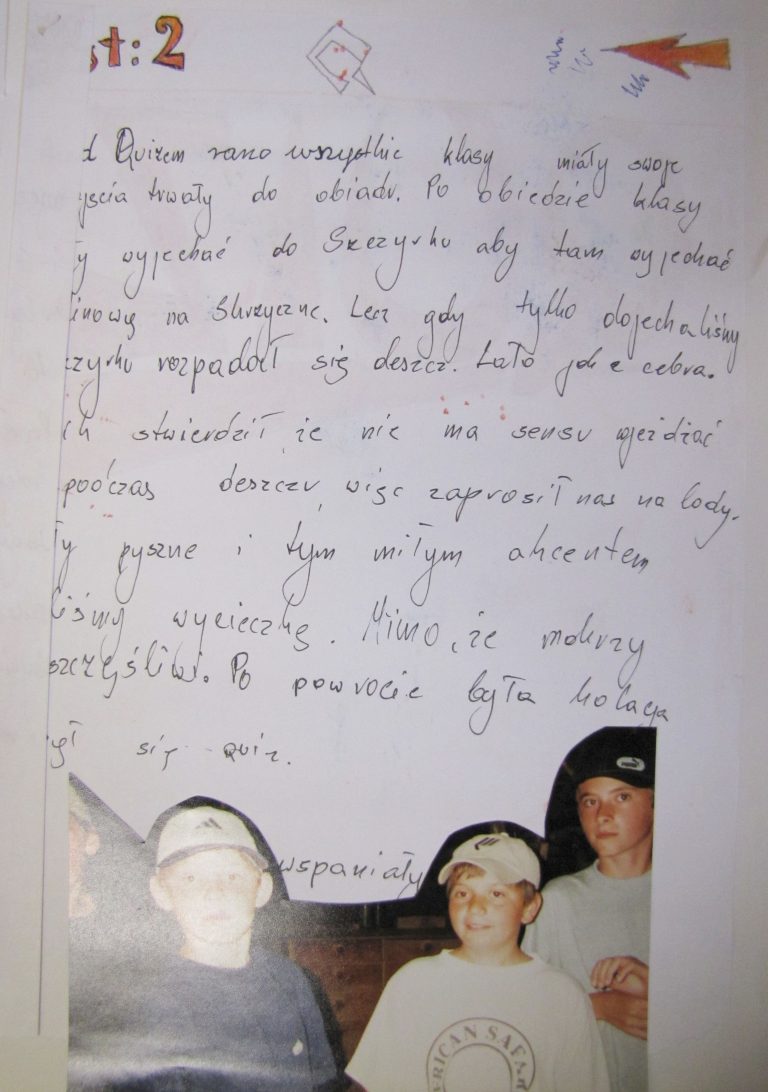 st: 2
Quizem rano wszystkie klasy miały swoje
yścia trwały do obiadu. Po obiedzie klasy
y wyjechać do Szczyrku aby tam wyjechać
linową na Skrzyczne. Lecz gdy tylko dojechaliśmy
czyrku rozpadał się deszcz. Lało jak z cebra.
stwierdził że nie ma sensu wjeżdżać
podczas deszczu, więc zaprosił nas na lody.
ły pyszne i tym miłym akcentem
liśmy wycieczkę. Mimo, że mokrzy
szczęśliwi. Po powrocie była kolacja
ył się quiz.
wspaniały
RICAN SAFA